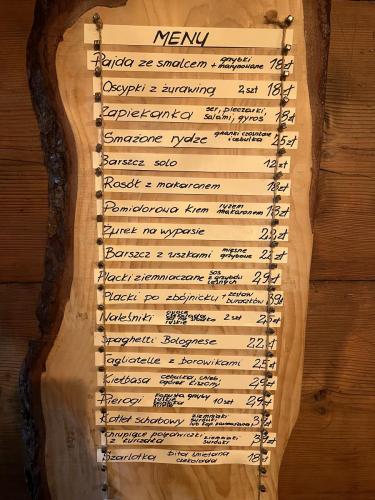 MENU
Pajda ze smalcem + grzybki marynowane 18 zł
Oscypki z żurawiną 2 szt 18 zł
Zapiekanka ser, pieczarki, salami, gyros 18 zł
Smażone rydze grzanki czosnkowe + cebulka 25 zł
Barszcz solo 12 zł
Rosół z makaronem 18 zł
Pomidorowa krem ryżem makaronem 18 zł
Żurek na wypasie 22 zł
Barszcz z uszkami mięsne grzybowe 22 zł
Placki ziemniaczane sos z grzybów leśnych 29 zł
Placki po zbójnicku + zestaw surówek 39 zł
Naleśniki ruskie 2 szt 25 zł
Spaghetti Bolognese 22 zł
Tagliatelle z borowikami 25 zł
Kiełbasa cebulka, chleb ogórek kiszony 29 zł
Pierogi kapusta grzyby ruskie mięso 10 szt 29 zł
Kotlet schabowy ziemniaki surówki lub kap. zasmażana zł
Chrupiące polędwiczki z kurczaka ziemniaki surówki zł
Szarlotka bita śmietana czekolada 18 zł